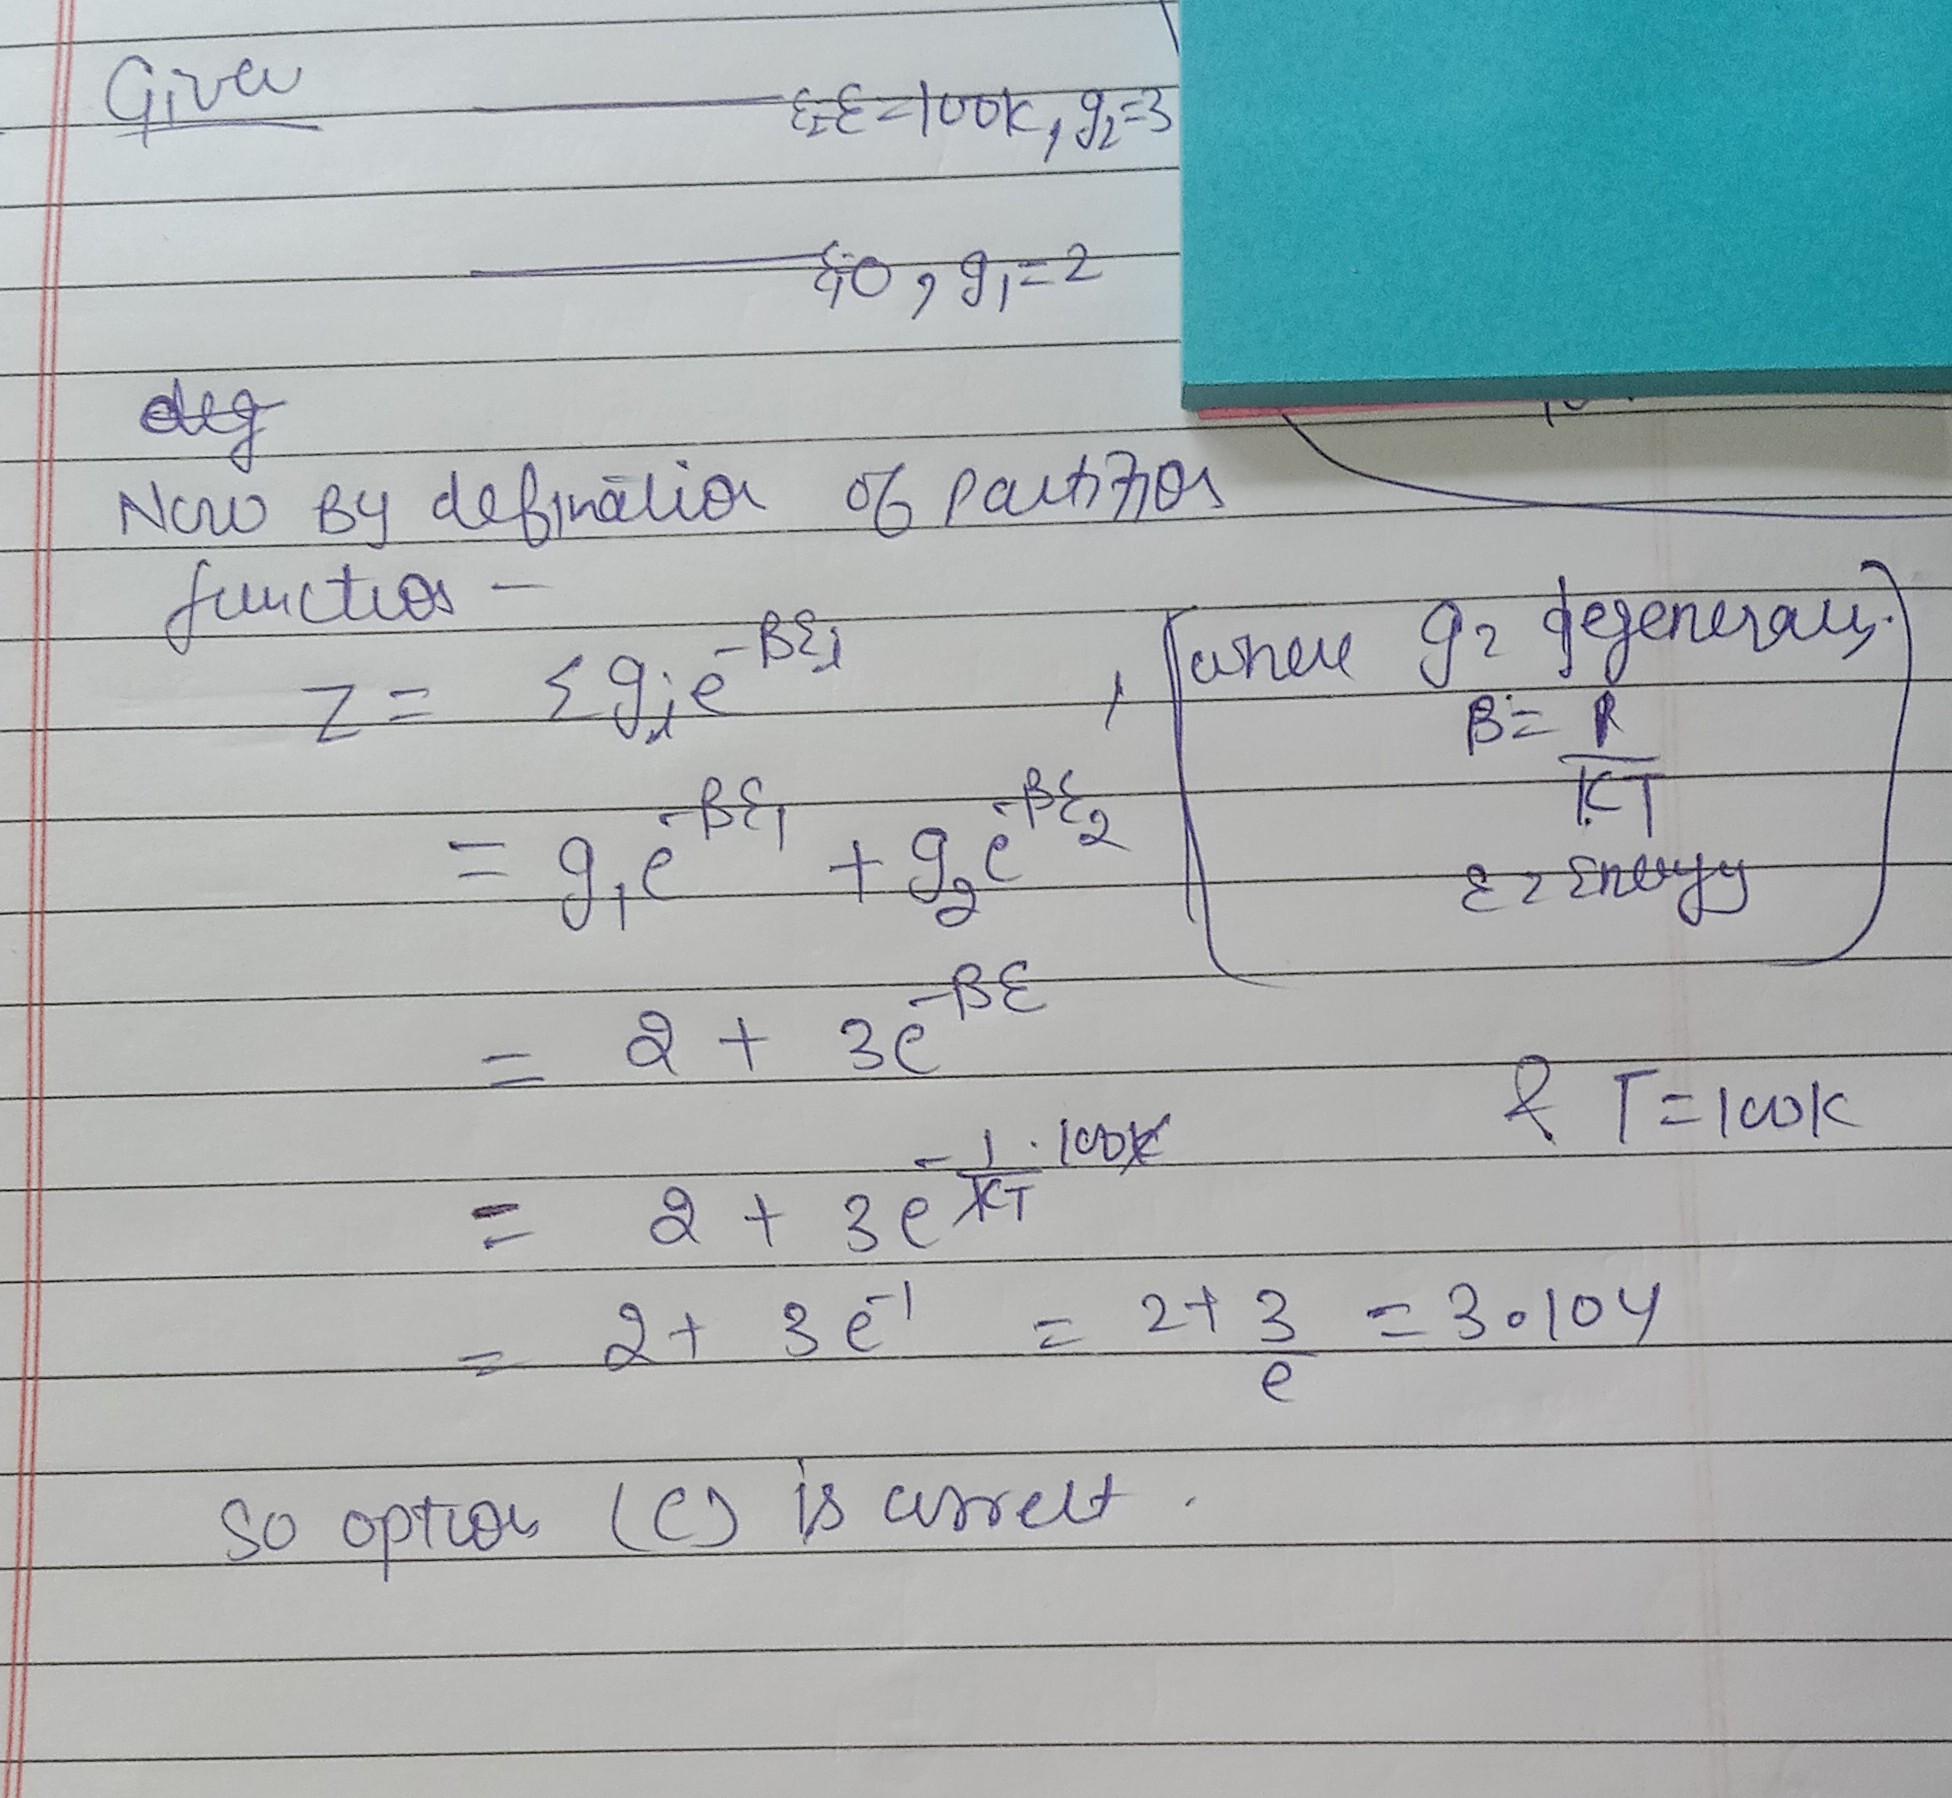 Given
ε₂=ε=100k, g₂=3
ε₁=0, g₁=2
deg
Now By definition of partition
function -
Z = Σ gᵢe^-βεᵢ , [where g = degeneracy.
β = 1/KT
ε = Energy]
= g₁e^-βε₁ + g₂e^-βε₂
= 2 + 3e^-βε
& T=100K
= 2 + 3e^-1/KT·100K
= 2 + 3e^-1 = 2 + 3/e = 3.104
So option (C) is correct.